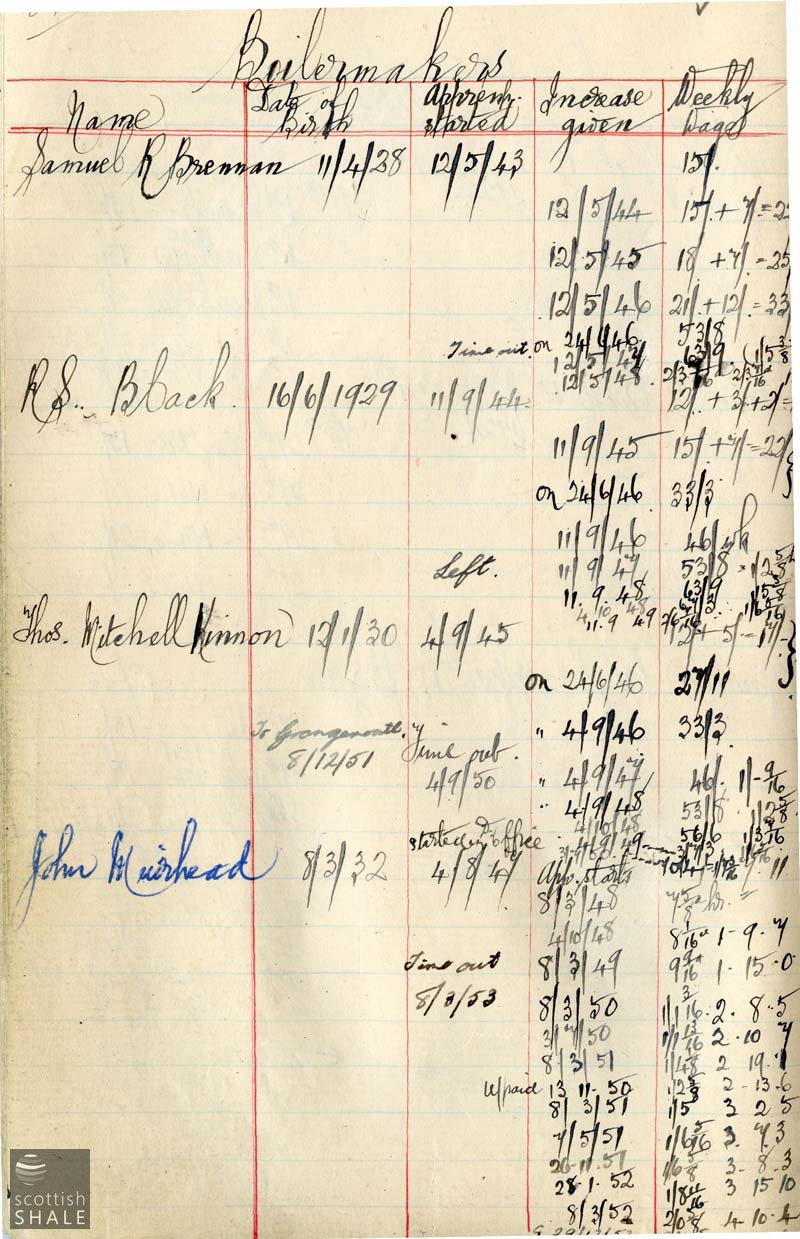 Boilermakers
Name Date of Birth Apprent. started Increase given Weekly Wage
Samuel R Brennan 11/4/28 12/5/43 15/.
12/5/44 15/. + 7/ = 22
12/5/45 18/ + 7/. = 25/
12/5/46 21/. + 12/. = 33
on 24/6/46 53/8
Time out. 12/5/47 63/9
12/5/48.
R S. Black. 16/6/1929 11/9/44 12/. + 3/. + 2/ =
11/9/45 15/. + 7/ = 22/
on 24/6/46 33/3
11/9/46 46/ wk
Left. 11/9/47 53/8
11. 9. 48 63/9
11. 9 49
Thos. Mitchell Kinnon 12/1/30 4/9/45 12/ + 5/. = 17/.
on 24/6/46 27/11
To Grangemouth. 8/12/51 " 4/9/46 33/3
Time out. 4/9/50 " 4/9/47 46/. 1/- 9/16
" 4/9/48 53/8
4/10/48 56/6
started in office 4/9/49
John Muirhead 8/3/32 4/8/47 App. starts
8/3/48 7 5/8 hr.
4/10/48 8 1/16 1 - 9 - 7
Time out 8/3/49 9 9/16 1. 15. 0
8/3/53 8/3/50 1/1 3/16 2. 8. 5
3/7/50 1/1 13/16 2 10 7
8/3/51 2 19. 1
u/paid 13 11. 50 2 - 13. 6
8/3/51 1/5 3 2 5
7/5/51 1/6 5/16 3. 7 3
26. 11. 51 1/6 5/8 3. 8. 3
28. 1. 52 1/8 11/16 3 15 10
8/3/52 4. 10. 4
scottish
SHALE